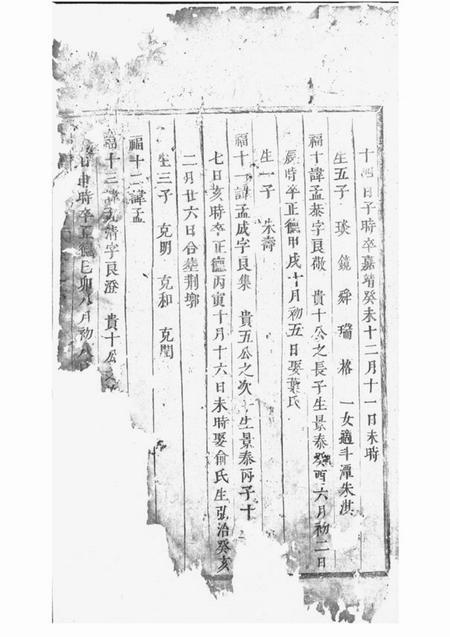 十四日子時卒嘉靖癸未十二月十一日未時
生五子 琰 鏡 舜 瑞 格 一女適斗潭朱淇
福十諱孟泰字良敬 貴十公之長子生景泰癸酉六月初二日
辰時卒正德甲戌十月初五日娶葉氏
生一子 朱壽
福十一諱孟成字良集 貴五公之次子生景泰丙子十
七日亥時卒正德丙寅十月十六日未時娶俞氏生弘治癸亥
二月廿六日合塟荆塢
生三子 克明 克和 克閏
福十二諱孟
福十三諱孟清字良澄 貴十公之
日申時卒正德己卯八月初八日